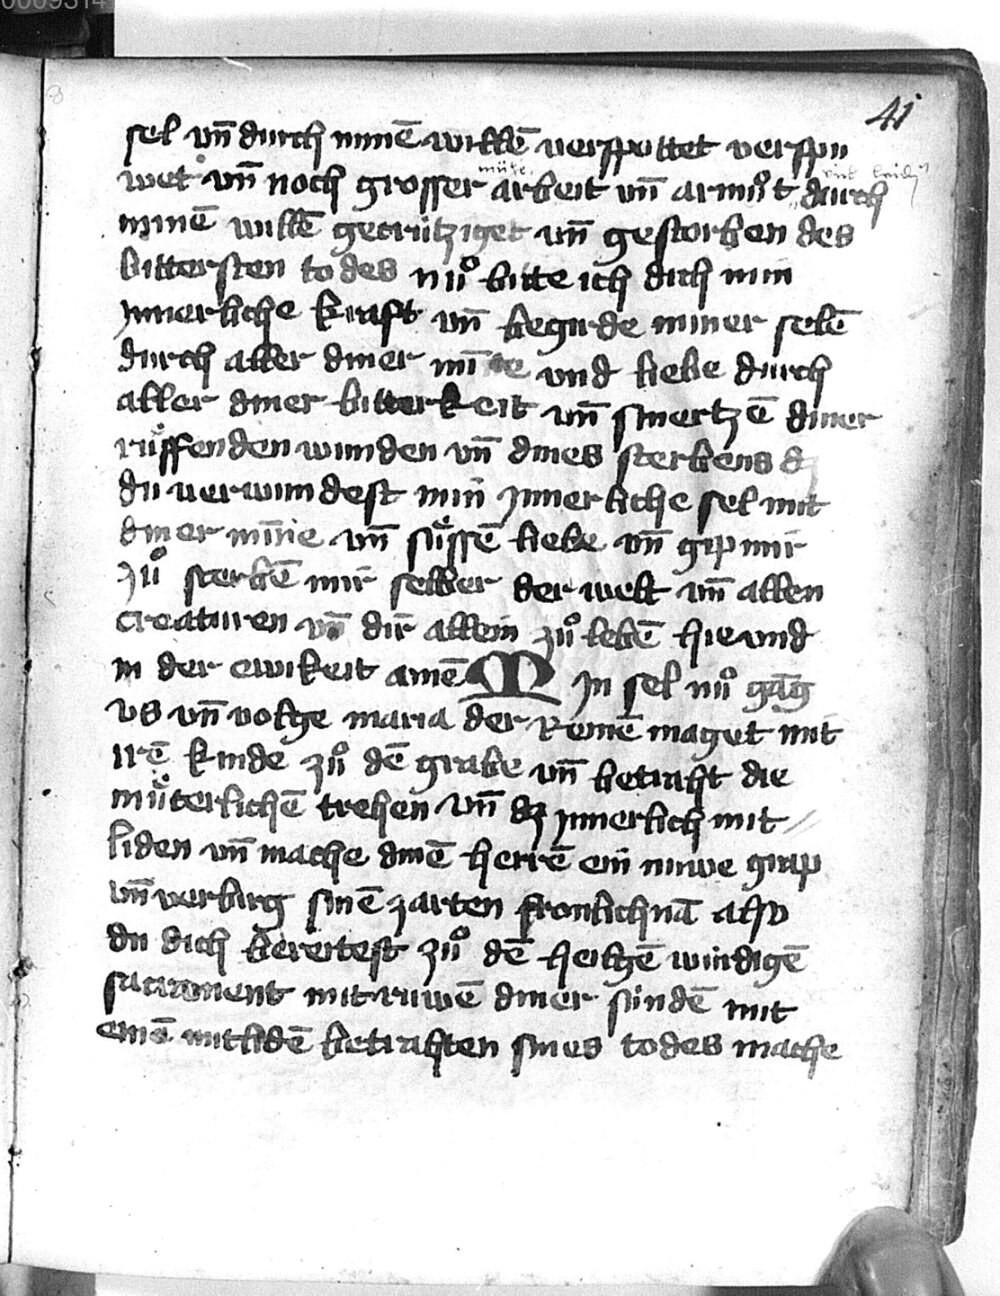 41
sel vn̄ durch minē willē verspottet verspu
wet vn̄ noch grosser arbeit vn̄ armuͦt durch
minē willē gecrútziget vn̄ gestorben des
bittersten todes nuͦ bitte ich dich min
ynnerliche kraft vn̄ begirde miner selē
durch aller diner mīne vnd liebe durch
aller diner bitterkeit vn̄ smertzē diner
ruͤffenden wunden vn̄ dines sterbens dz
du verwundest min ynnerliche sel mit
diner mīne vn̄ suͤssē liebe vn̄ gip mir
zuͦ sterbē mir selber der welt vn̄ allen
creaturen vn̄ dir allein zuͦ lebē hie vnd
in der ewikeit amē Min sel nuͦ gāg
vs vn̄ volge maria der reinē maget mit
irē kinde zuͦ dē grabe vn̄ betraht die
muͤterlichē trehen vn̄ dz ynnerlich mit
liden vn̄ mache dinē herrē ein nuwe grap
vn̄ verbirg sinē zarten fronlichnā also
du dich bereitest zuͦ dē heilgē wirdigē
sacrament mit ruwē diner súndē mit
einē mitlidē betrahten sines todes mache